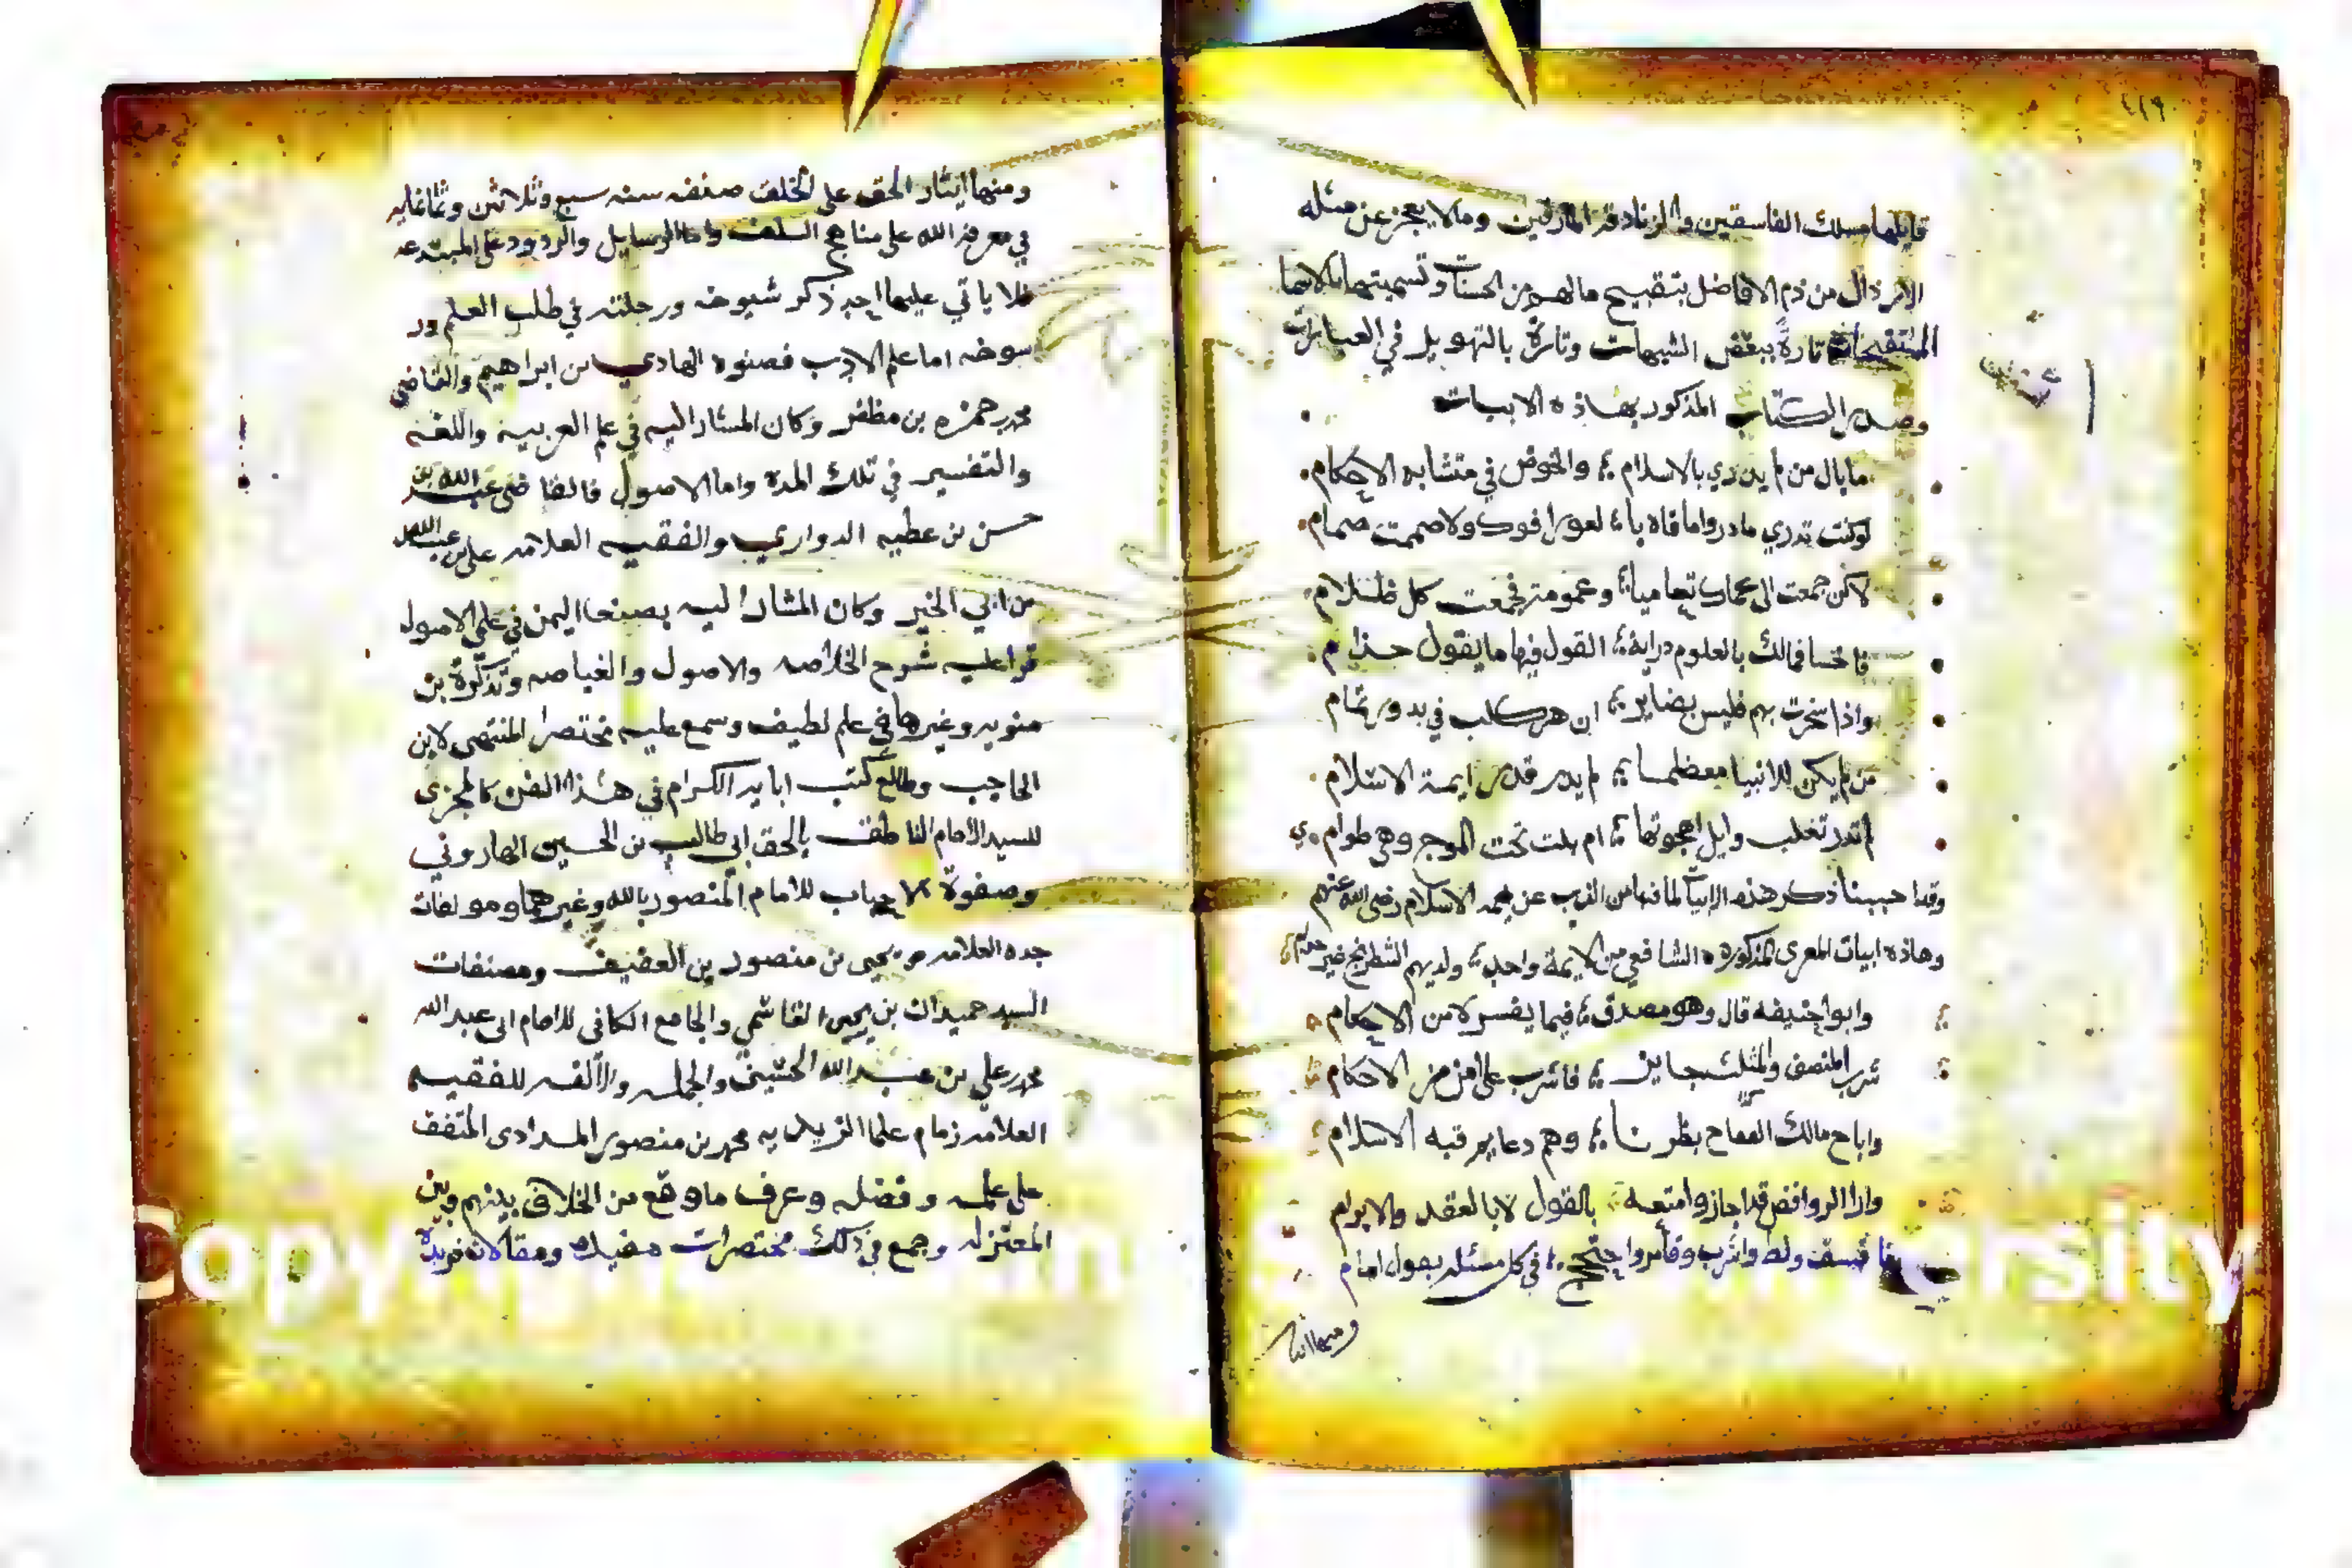 ٤١٩
قايلها مسلك الفاسقين والزنادقة المارقين ومالا يعجز عن مثله
الارذال من ذم الافاضل بتقبيح مالهم من الحسنات وتسميتها بالاسما
تارةً ببعض الشبهات وتارة بالتهويل في العبارات
وصدر الكتاب المذكور بهاذه الابيات
مابال من لم يدر دي بالاسلام والخوض في متشابه الاحكام
لوكنت تدري مادروا مافاه بالعورا فوك ولا صممت صمام
لاكن جمعت الى عماك تعاميا وعمومة فجمعت كل ظلام
فاخسا فمالك بالعلوم دراية القول فيها مايقول حذام
واذا سخرت بهم فليس بضاير ان هر كلب في بدور تمام
من لم يكن للانبيا معظما لم يدر قدر ايمة الاسلام
لم تدر تغلب وايل اهجوتها ام بلت تحت الموج وهي طوام
وقد احببنا ذكر هذه الابيات لما فيها من الذب عن ايمة الاسلام رضي الله عنهم
وهاذه ابيات المعري المذكوره الشافعي من الايمة واحد ولديهم الشطرنج غير حرام
وابوا حنيفه قال وهو مصدق فيما يفسر لا من الاحكام
شرب المنصف والمثلث جايز فاشرب على امن من الاحكام
واباح مالك الفقاح وهم دعايم قبه الاسلام
وارا الروافض قد اجازوا متعه بالقول لا بالعقد والابرام
فافسق ولط واشرب وقامر واحتجج في كل مسئله بقول امام
ومنها ايثار
ومنها ايثار الحق على الخلق صنفه سنه سبع وثلاثين وثمانمايه
في معرفة الله على مناهج السلف واما الرسايل والردود على المبتدعه
فلا ياتي عليها احد ذكر شيوخه ورحلته في طلب العلم
اما علم الادب فصنوه الهادي بن ابراهيم والقاضي
محمد بن حمزه بن مظفر وكان المشار اليه في علم العربيه واللغه
والتفسير في تلك المدة واما الاصول فالقاضي عبد الله بن
حسن بن عطيه الدواري والفقيه العلامه علي بن عبد الله
بن ابي الخير وكان المشار اليه بصنعا اليمن في علم الاصول
قرا عليه شرح الخلاصه والاصول والغياصه وتذكرة بن
متويه وغيرها في علم لطيف وسمع عليه مختصر المنتهى لابن
الحاجب وطالع كتب ابايه الكرام في هذا الفن كالمجزي
للسيد الامام الناطق بالحق ابي طالب بن الحسين الهاروني
وصفوة للامام المنصور بالله وغيرهما ومولفات
جده العلامه يحيى بن منصور بن العفيف ومصنفات
السيد حميدان بن يحيى القاسمي والجامع الكافي للامام ابي عبد الله
محمد بن علي بن عبد الله الحسني والجمله والالفه للفقيه
العلامه زمام علما الزيديه محمد بن منصور المرادي المتفق
على علمه وفضله وعرف ماوقع من الخلاف بينهم وبين
المعتزله وجمع في ذلك مختصرات مفيده ومقالات فريدة